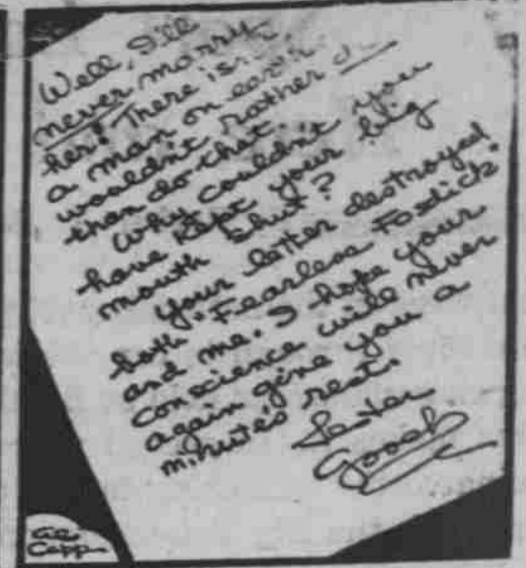 Well, I'll
never marry
her! There is
a man on earth
wouldn't rather
then do that.
Why couldn't you
have kept your big
mouth shut?
Your letter destroyed
both "Fearless Fosdick"
and me. I hope your
conscience will never
again give you a
minute's rest.
Lester
Gooch
Al
Capp